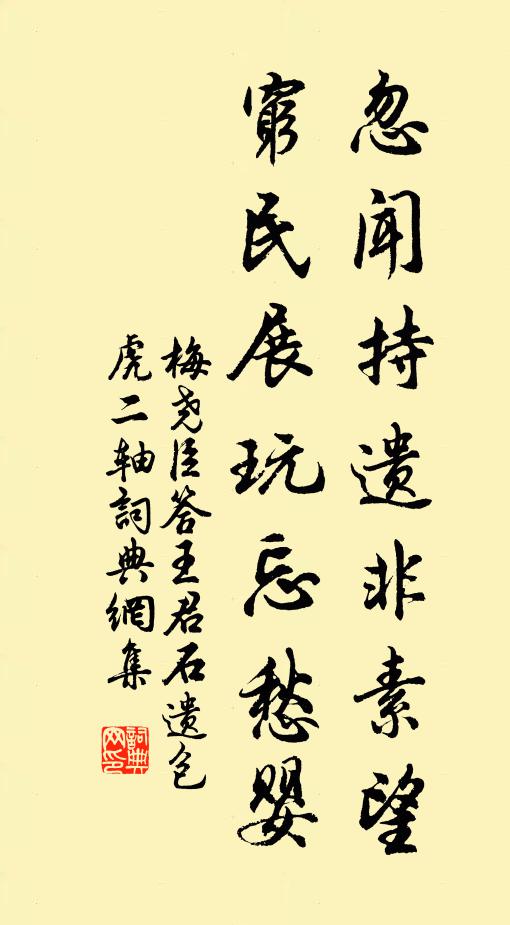 忽闻持遗非素望
穷民展玩忘愁婴
梅尧臣答王君石遗包
虎二轴词典網集
詞典网印